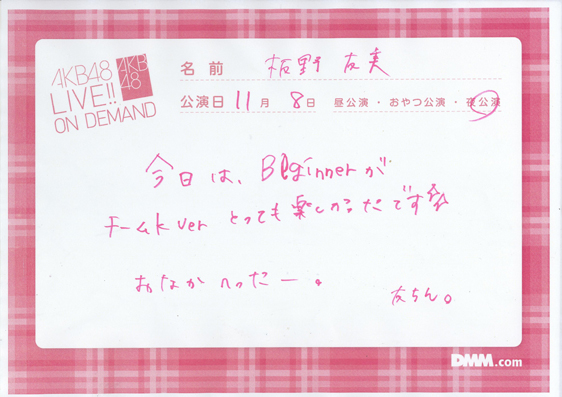 AKB48
LIVE!!
ON DEMAND
AKB
48
名前 板野友美
公演日 11月 8日 昼公演・おやつ公演・夜公演
今日は、Beginnerが
チームK ver とっても楽しかったです☆
おなかへったー。
友ちん。
DMM.com